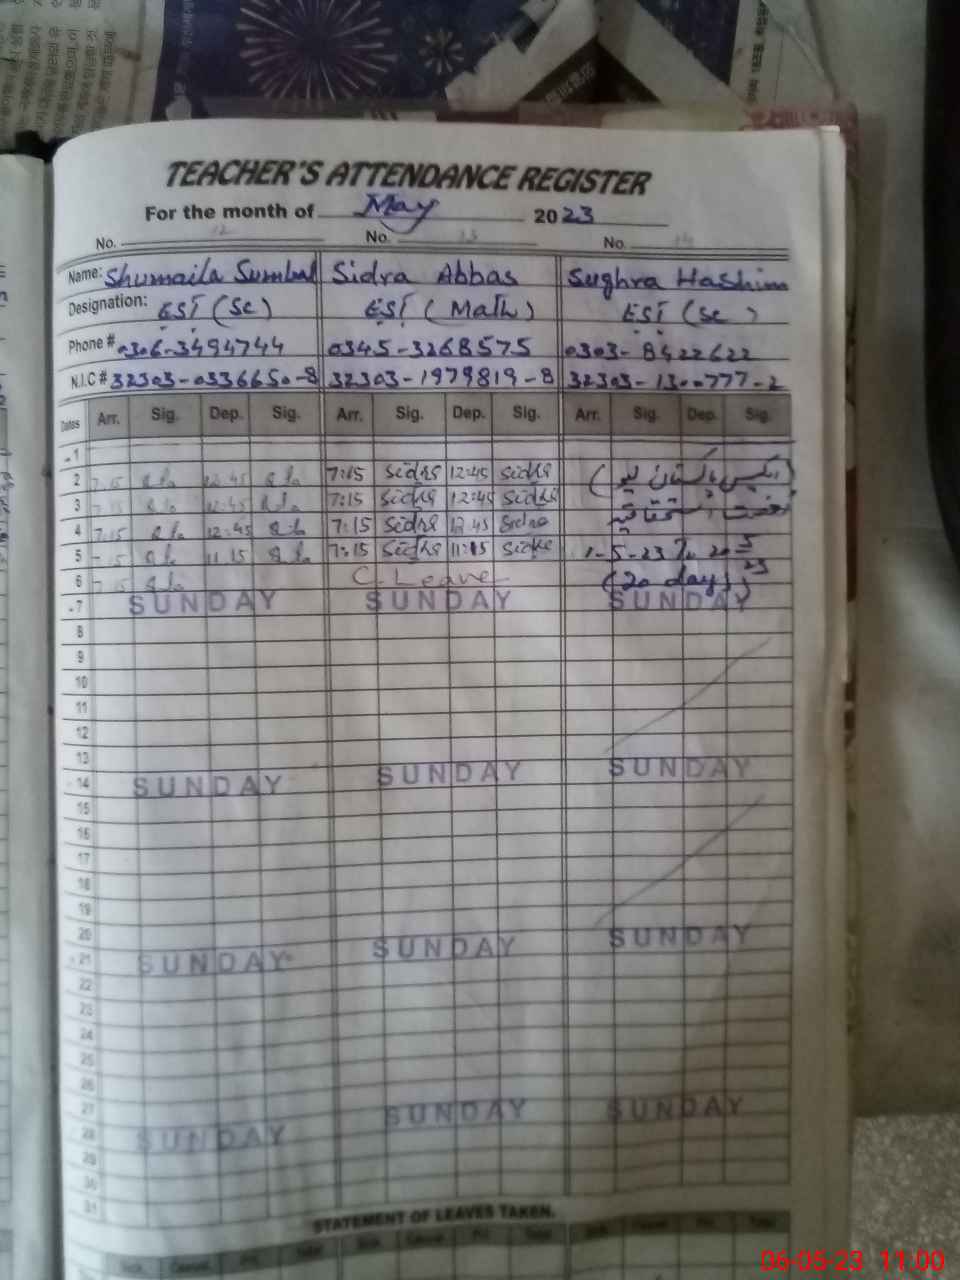 TEACHER'S ATTENDANCE REGISTER
For the month of May 2023
No. 12 No. 13 No. 14
Name: Shumaila Sumbal Sidra Abbas Sughra Hashim
Designation: EST (Sc) EST (Math) EST (Sc)
Phone # 0306-3494744 0345-3268575 0303-8422622
N.I.C # 32303-0336650-8 32303-1979819-8 32303-1300777-2
Dates Arr. Sig. Dep. Sig. Arr. Sig. Dep. Sig. Arr. Sig. Dep. Sig.
1
2 7:15 12:45 7:15 Sidra 12:45 Sidra
3 7:15 12:45 7:15 Sidra 12:45 Sidra
4 7:15 12:45 7:15 Sidra 12:45 Sidra
5 7:15 11:15 7:15 Sidra 11:15 Sidra 1-5-23 To 20-5-23
6 7:15 C. Leave (20 days)
7 SUNDAY SUNDAY SUNDAY
8
9
10
11
12
13
14 SUNDAY SUNDAY SUNDAY
15
16
17
18
19
20
21 SUNDAY SUNDAY SUNDAY
22
23
24
25
26
27
28 SUNDAY SUNDAY SUNDAY
29
30
31
STATEMENT OF LEAVES TAKEN.
06-05-23 11:00